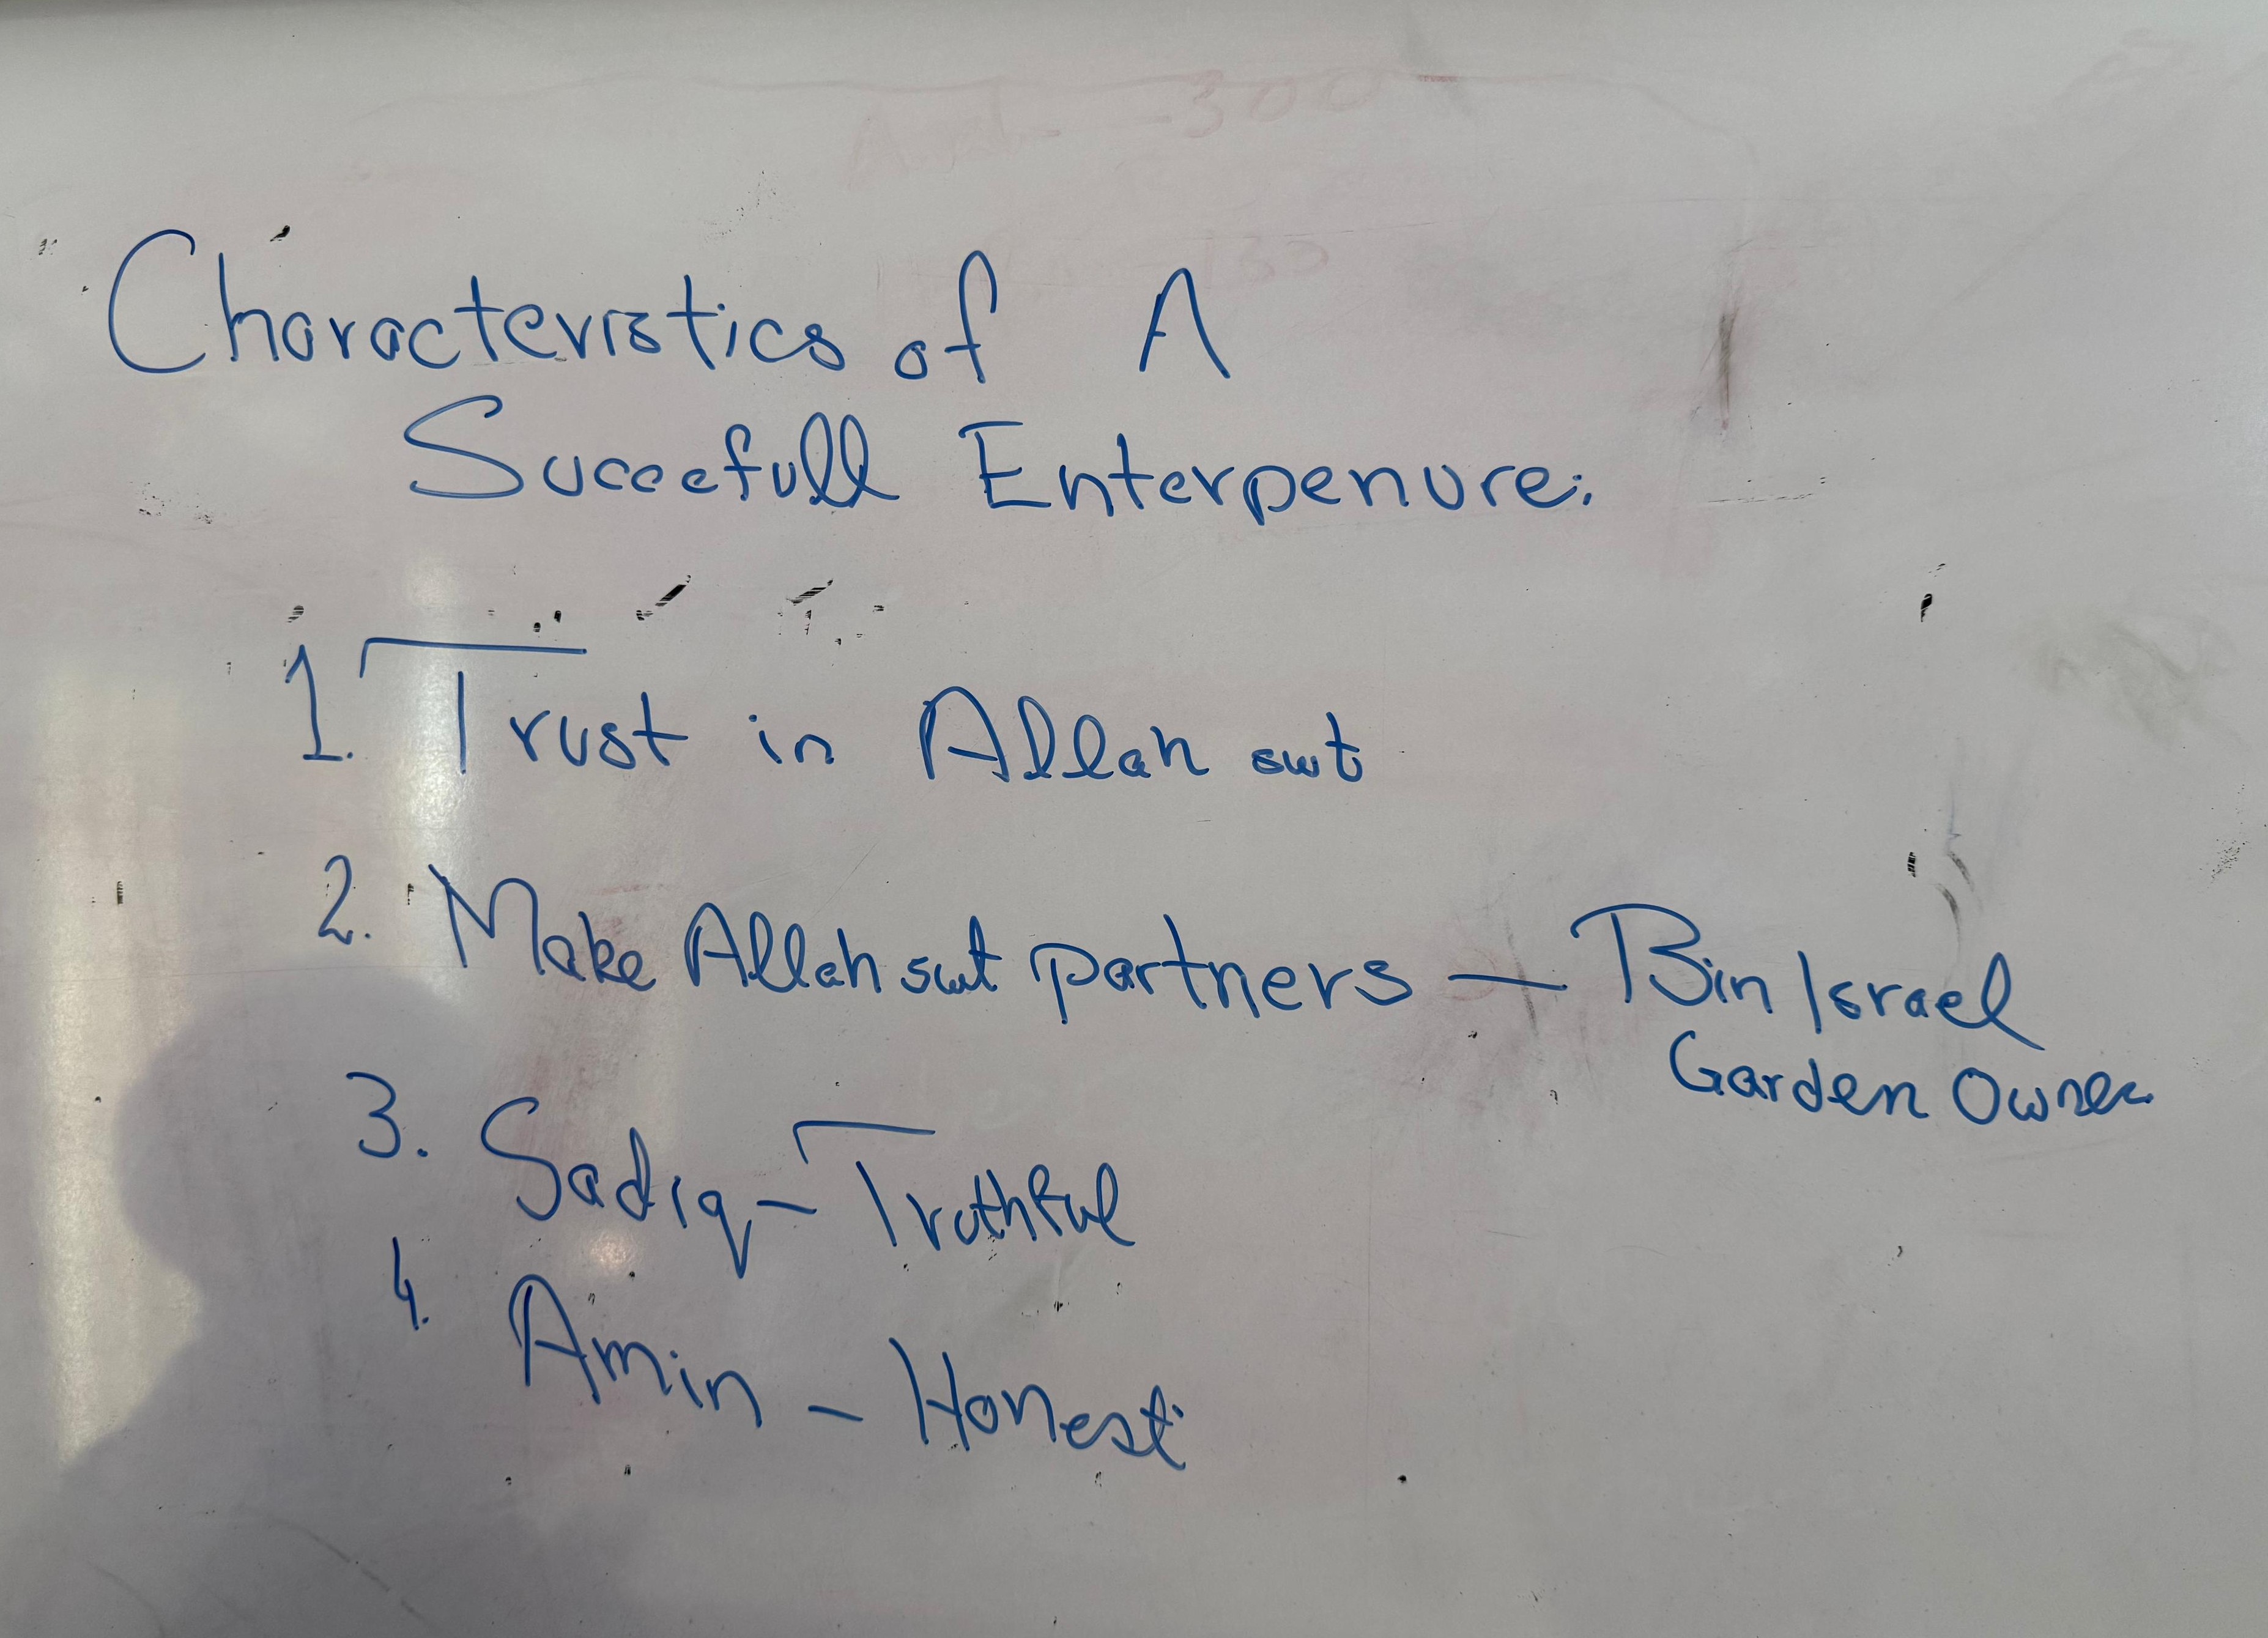 Characteristics of A
Succefull Enterpenure:
1. Trust in Allah swt
2. Make Allah swt partners — Bin Israel
Garden Owner
3. Sadiq - Truthful
4. Amin - Honest